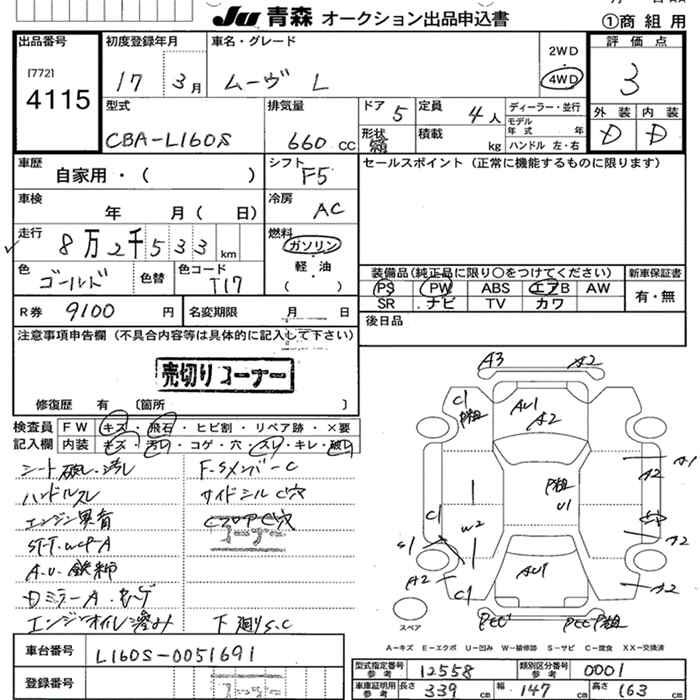 Ju 青森 オークション出品申込書
①商 組 用
出品番号
[772]
4115
初度登録年月
17 3月
車名・グレード
ムーヴ L
2WD
4WD
評 価 点
3
型式
CBA-L160S
排気量
660 cc
ドア 5
定員 4 人
形状
積載 kg
ディーラー・並行
モデル年式 年
ハンドル 左・右
外 装 内 装
D D
車歴
自家用・( )
シフト
F5
セールスポイント (正常に機能するものに限ります)
車検
年 月( 日)
冷房
AC
走行
8万2千533 km
燃料
ガソリン
軽・油
( )
色
ゴールド
色替
色コード
T17
装備品(純正品に限り〇をつけてください)
新車保証書
PS PW ABS エアB AW
SR ナビ TV カワ
有・無
R券 9100 円
名変期限 月 日
後日品
注意事項申告欄 (不具合内容等は具体的に記入して下さい)
売切りコーナー
修復歴 有 〔箇所 〕
検査員 FW キズ・飛石・ヒビ割・リペア跡・×要
記入欄 内装 キズ・汚れ・コゲ・穴・スレ・キレ・破れ
シート破れ・汚れ
F.Sメンバー C
ハンドルスレ
サイドシル C穴
エンジン異音
CフロアC穴
コーナー
ST-T.WCP-A
A.U.鉄粉
Dミラー A.
エンジンオイルにじみ
下廻りS.C
A3 A2
C1
AU1
A2
A1
A2
U1
C1
W2
S1
A2
A2
C1
AU1
A2
スペア
A-キズ E-エクボ U-凹み W-補修跡 S-サビ C-腐食 XX-交換済
車台番号
L160S-0051691
登録番号
型式指定番号 参考 12558
類別区分番号 参考 0001
車庫証明用 参考 長さ 339 cm 幅 147 cm 高さ 163 cm